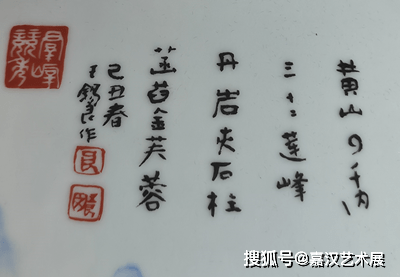 群峰競秀
黄山四千仞
三十二蓮峰
丹岩夹石柱
菡萏金芙蓉
己丑春
王錫良作
良
搜狐号@嘉汉艺术展